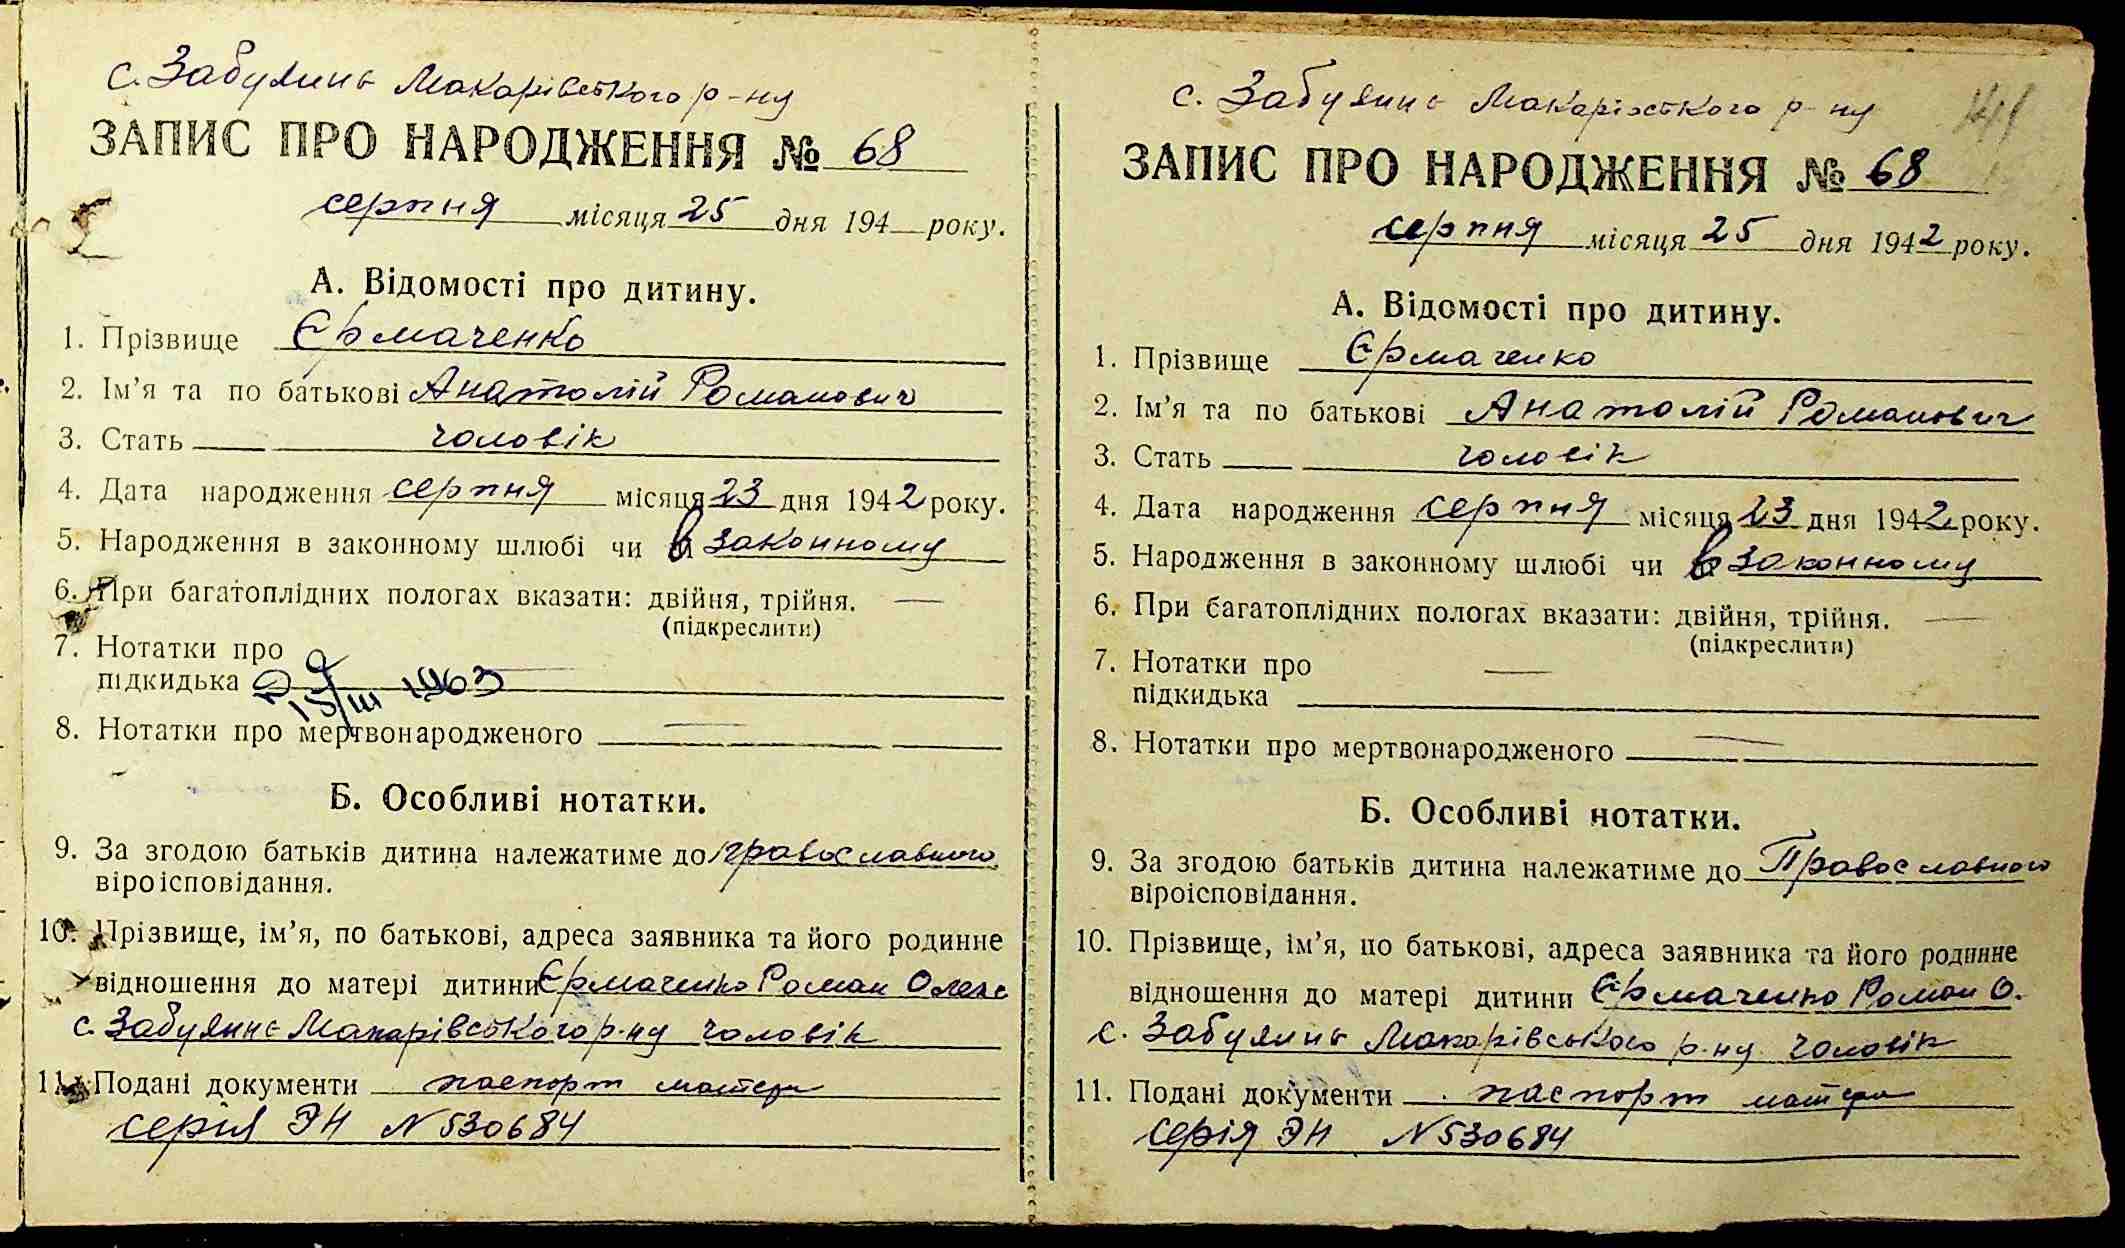 с. Забуянь Макарівського р-ну
ЗАПИС ПРО НАРОДЖЕННЯ № 68
серпня місяця 25 дня 194 року.
А. Відомості про дитину.
1. Прізвище Єрмаченко
2. Ім'я та по батькові Анатолій Романович
3. Стать чоловік
4. Дата народження серпня місяця 23 дня 1942 року.
5. Народження в законному шлюбі чи в законному
6. При багатоплідних пологах вказати: двійня, трійня. —
(підкреслити)
7. Нотатки про
підкидька 15/III 1963
8. Нотатки про мертвонародженого —
Б. Особливі нотатки.
9. За згодою батьків дитина належатиме до православного
віроісповідання.
10. Прізвище, ім'я, по батькові, адреса заявника та його родинне
відношення до матері дитини Єрмаченко Роман Олекс
с. Забуянь Макарівського р-ну чоловік
11. Подані документи паспорт матери
серія ЭН N 530684
с. Забуянь Макарівського р-ну
ЗАПИС ПРО НАРОДЖЕННЯ № 68
серпня місяця 25 дня 1942 року.
А. Відомості про дитину.
1. Прізвище Єрмаченко
2. Ім'я та по батькові Анатолій Романович
3. Стать чоловік
4. Дата народження серпня місяця 23 дня 1942 року.
5. Народження в законному шлюбі чи в законному
6. При багатоплідних пологах вказати: двійня, трійня. —
(підкреслити)
7. Нотатки про —
підкидька
8. Нотатки про мертвонародженого —
Б. Особливі нотатки.
9. За згодою батьків дитина належатиме до Православного
віроісповідання.
10. Прізвище, ім'я, по батькові, адреса заявника та його родинне
відношення до матері дитини Єрмаченко Роман О.
с. Забуянь Макарівського р-ну чоловік
11. Подані документи паспорт матери
серія ЭН N 530684